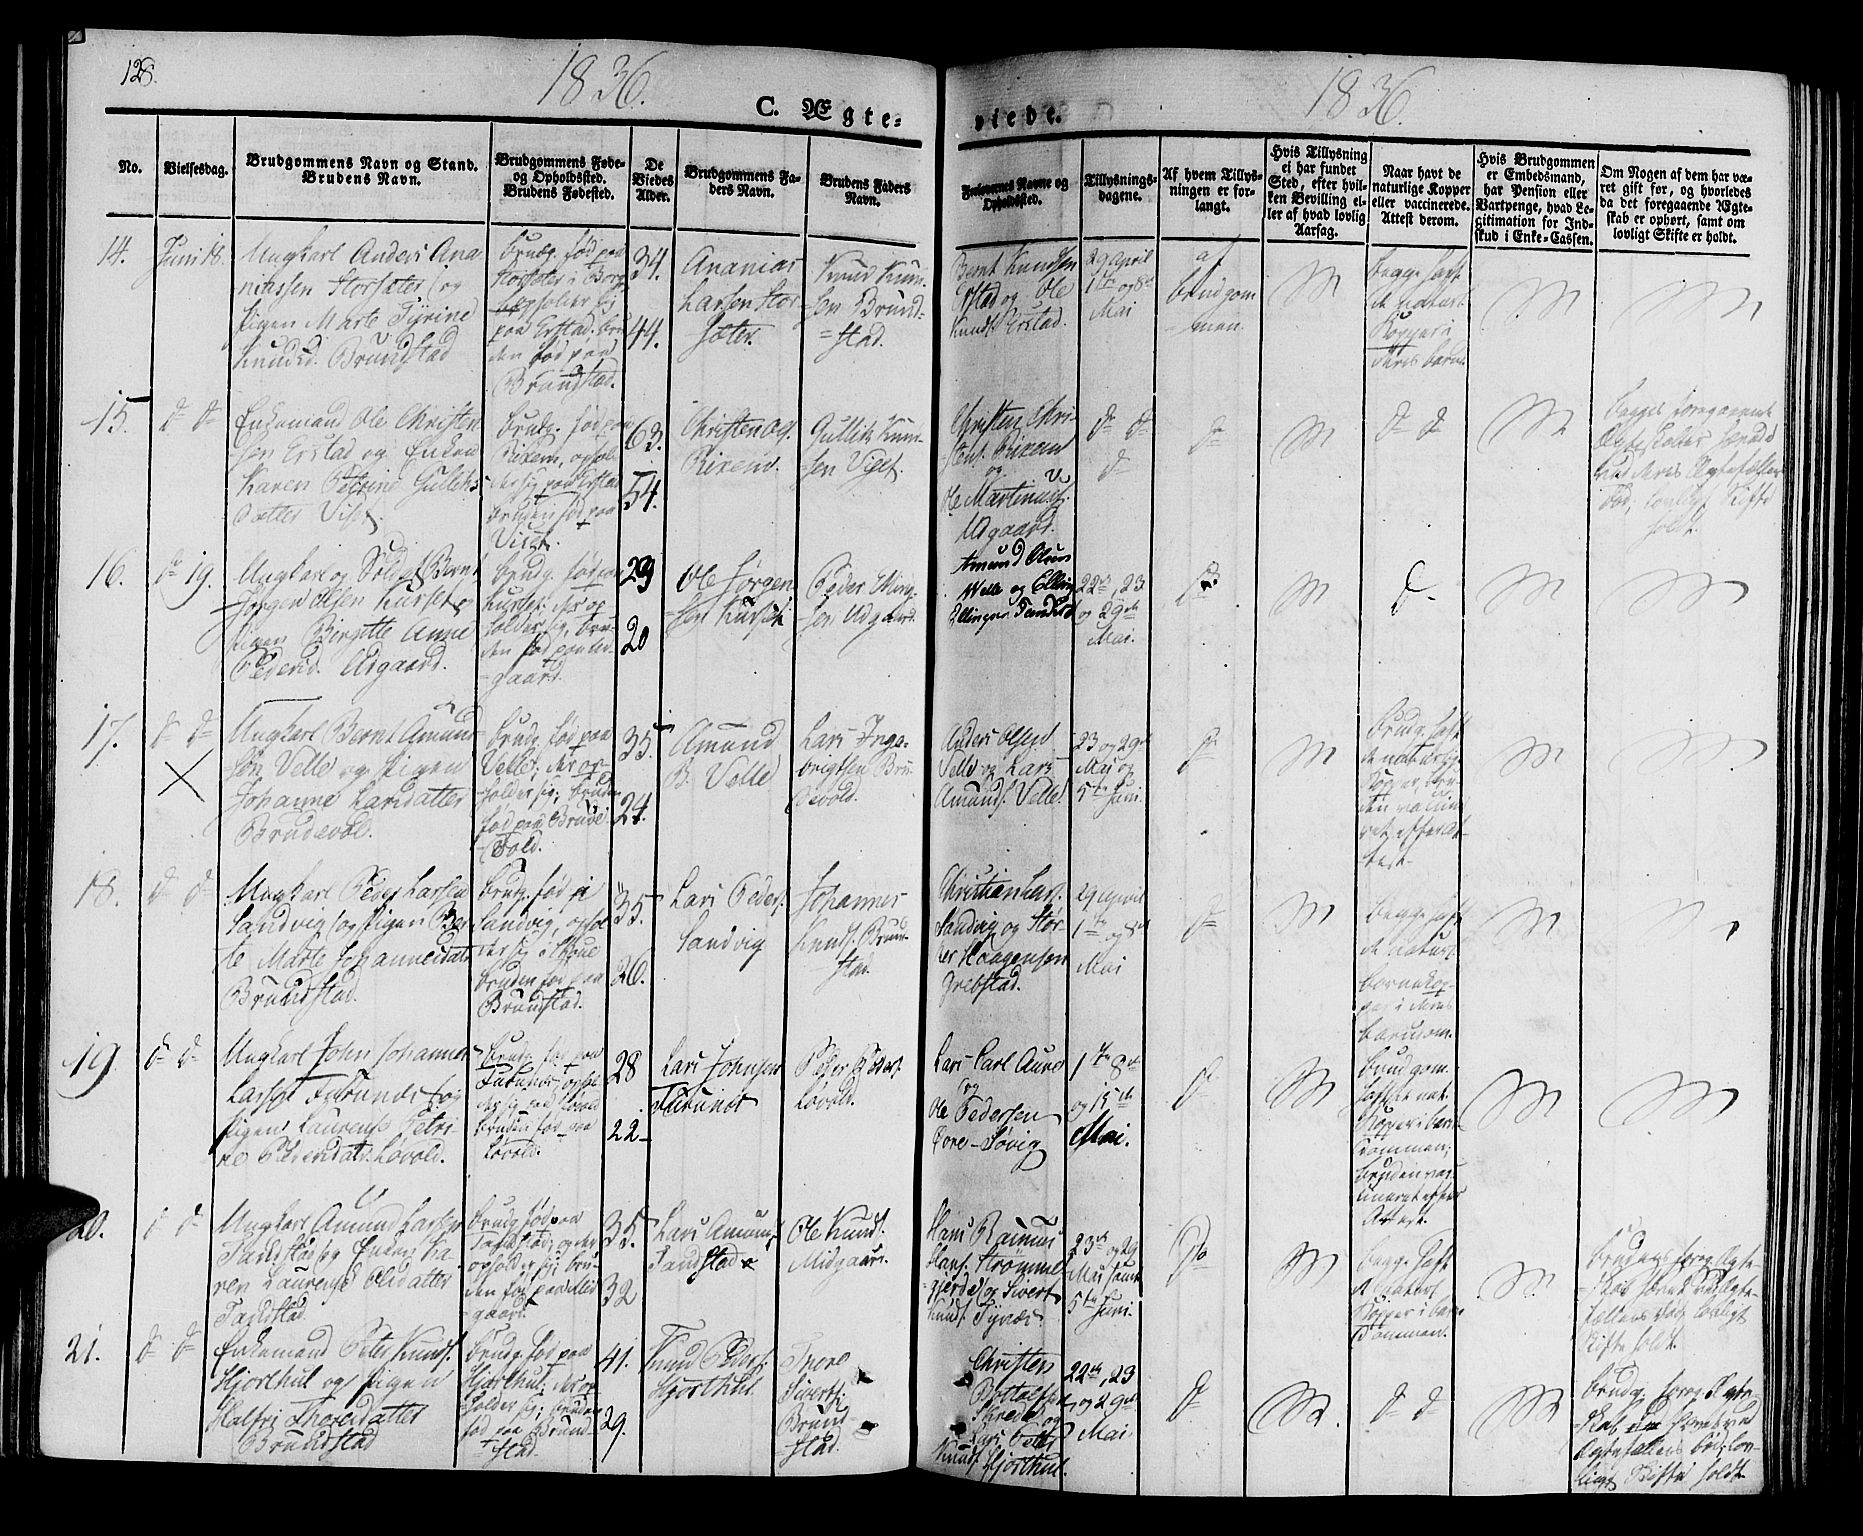 128.
1836.
1836.
C. Ægte-
viede.
No.
Vielsesdag.
Brudgommens Navn og Stand.
Brudens Navn.
Brudgommens Føde-
og Opholdssted.
Brudens Fødested.
De
Viedes
Alder.
Brudgommens Fa-
ders Navn.
Brudens Faders
Navn.
Forlovernes Navne og
Opholdssted.
Tillysnings-
dagene.
Af hvem Tillys-
ningen er for-
langt.
Hvis Tillysning
ei har fundet
Sted, efter hvil-
ken Bevilling el-
ler af hvad lovlig
Aarsag.
Naar havt de
naturlige Kopper
eller vaccinerede.
Attest derom.
Hvis Brudgommen
er Embedsmand,
har Pension eller
Vartpenge, hvad Le-
gitimation for Ind-
skud i Enke-Cassen.
Om Nogen af dem har væ-
ret gift før, og hvorledes
da det foregaaende Ægte-
skab er ophørt, samt om
lovligt Skifte er holdt.
14.
Juni 18.
Ungkarl Anders Ana-
niassen Storsæter og
Pigen Marte Tyrine
Knudsd. Brundstad
Brudg. fød paa
Storsæter i Borg
opholder sig
paa Erstad, bru
den fød paa
Brundstad.
34.
44.
Ananias
Larsen Stor-
sæter.
Knud Knud-
sen Brund-
stad.
Bernt Knudsen
Erstad og Ole
Knuds. Erstad.
29 April
1ste og 8de
Mai
af
brudgom
men.
begge haft
de naturl.
Kopper i
deres barnd.
15.
d- d-
Enkemand Ole Christen
sen Erstad og Enken
Karen Petrine Gulliks
datter Viset.
brudg. fød paa
Rixem, ophol-
der sig paa Erstad
bruden fød paa
Viset.
63.
54.
Christen Ols.
Rixem.
Gullik Knud-
sen Viset.
Christen Chri-
stens. Rixem
og
Ole Martinus.
Udgaard.
d- d-
d-
d-
d- d-
16.
d- 19.
Ungkarl og Soldat Bernt
Jørgen Olsen Kurset og
Pigen Birgitte Anne
Pedersd. Udgaard.
brudg. fød paa
Kurset, der op
holder sig, bru-
den fød paa Ud-
gaard.
29
20
Ole Jørgen
sen Kurset
Peder
Udgaard.
Amund Olsen
Welle og Elling
Ellingsen Tandstad
22de, 23
og 29de
Mai.
d-
17.
d- d-
Ungkarl Bernt Amund-
sen Velle og Pigen
Johanne Larsdatter
Brudevol.
brudg. fød paa
Velle, der op-
holder sig, bruden
fød paa Brude
vold.
35.
24.
Amund
B. Velle
Lars Inge-
brigtsen Bru-
devold.
Anders Olsen
Velle og Lars
Amunds. Velle.
23 og 29de
Mai og
5te Juni.
d-
brudg. haft
de naturlige
Kopper, bru-
den vaccine-
ret efter At-
test.
18.
d- d-
Ungkarl Peder Larsen
Sandvig og Pigen Ber
te Marte Johannesdatt.
Brundstad.
brudg. fød i
Sandvig, ophol
der sig i Skoue
bruden fød paa
Brundstad.
35.
26.
Lars Peders.
Sandvig
Johannes
Knuds. Brund-
stad.
Christian Lars.
Sandvig og Stør-
ker Haagensen
Grebstad.
29 April
1ste og 8de
Mai
d-
begge haft
de naturl.
bornekop-
per i deres
barndom.
19
d- d-
Ungkarl John Johannes
Larsen Furunæs og
Pigen Laurense Petri-
ne Pedersdatt. Løvold.
brudg. fød paa
Furunæs, ophol
der sig paa Løvold
bruden fød paa
Løvold.
28
22
Lars Johnsen
Furunæs
Peder Peders.
Løvold.
Lars Carl Aure
og
Ole Pedersen
Tore-Søvig
1ste 8de
og 15de
Mai.
d-
brudgom.
haft de nat.
Kopper i barn-
dommen;
bruden vac
cineret efter
Attest.
20.
d- d-
Ungkarl Amund Larsen
Tandstad og Enken Ka-
ren Laurense Olsdatter
Tandstad
brudg. fød paa
Tandstad, og der
opholder sig; bru-
den fød paa Mid-
gaard.
35.
32
Lars Amunds.
Tandstad
Ole Knuds.
Midgaard.
Hans Rasmus
Hans. Strømme-
gjerde og Sivert
Knuds. Tyvær
23de og 29
Mai samt
5te Juni.
Do
begge haft
de naturl.
Kopper i barn
dommen.
brudens foreg. Ægte-
skab
lovligt
Skifte holdt.
21.
d- d-
Enkemand Peter Knuds.
Hjorthul og Pigen
Halfri Thoresdatter
Brundstad
brudg. fød paa
Hjorthul, der op
holder sig; bruden
fød paa Brund-
stad.
41.
29.
Knud Peders.
Hjorthul
Thore
Siverts.
Brund-
stad.
Christen
og
Lars Peter
Knuds. Hjorthul.
22de, 23
og 29de
Mai
d-
d- d-
brudg. foreg. Ægte-
skab hævet ved
Ægtefællens død, lov-
ligt Skifte holdt